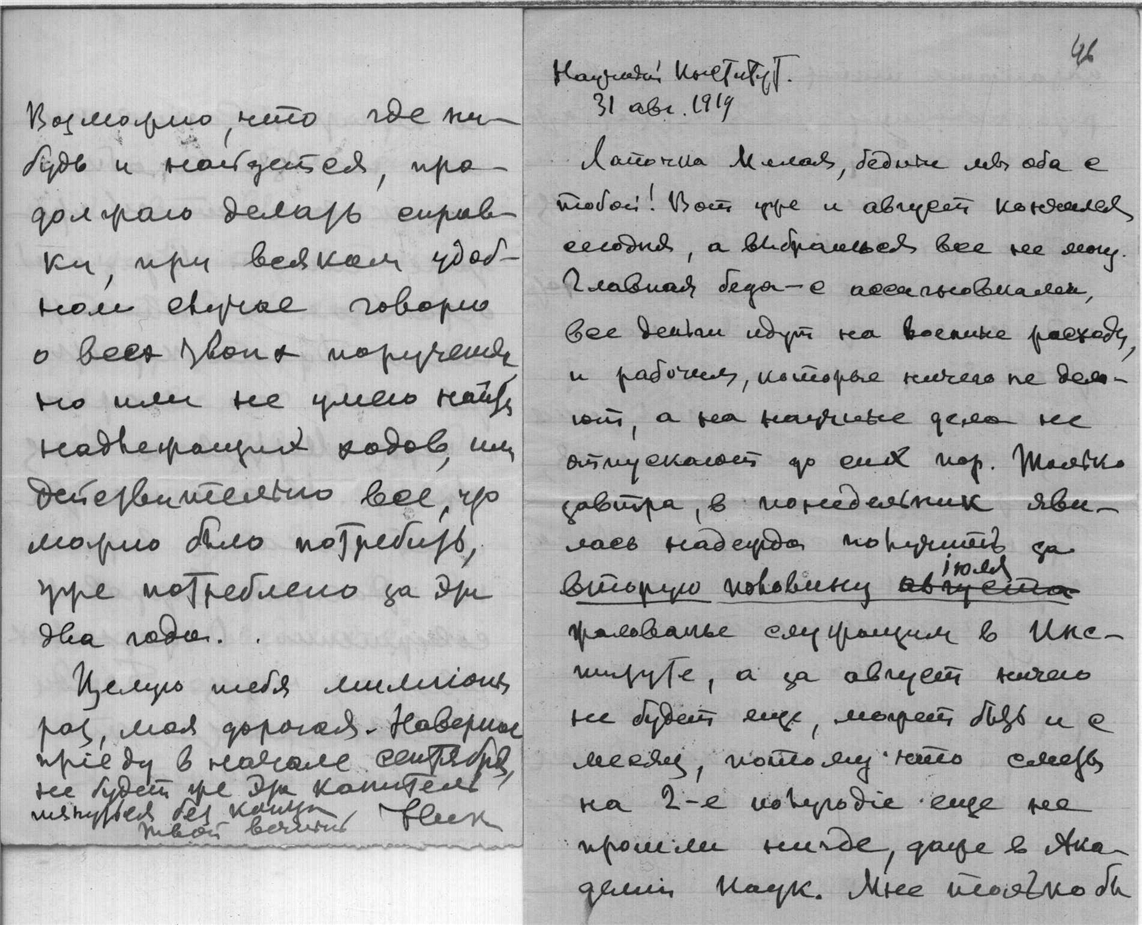 Возможно, что где ни-
будь и найдется, про-
должаю делать справ-
ки, при всяком удоб-
ном случае говорю
о всех твоих порученіях
но или не умею найти
надлежащих ходов, или
действительно все, что
можно было потребить,
уже потреблено за эти
два года. .
Целую тебя миллионы
раз, моя дорогая. Наверное
пріеду в начале сентября,
не будет же эта канитель
тянуться без конца
Твой вечный
46
Научный Институт.
31 авг. 1919
Лапочка Милая, бедные мы оба с
тобой! Вот уже и август кончился
сегодня, а выбраться все не могу.
Главная беда – с ассигновками,
все деньги идут на военные расходы,
и рабочим, которые ничего не дела-
ют, а на научные дела не
отпускают до сих пор. Только
завтра, в понедельник яви-
лась надежда получить за
вторую половину августа іюля
жалованье служащим в Инс-
титуте, а за август ничего
не будет еще, может быть и с
месяц, потому что сметы
на 2-е полугодіе еще не
прошли нигде, даже в Ака-
деміи Наук. Мне только бы